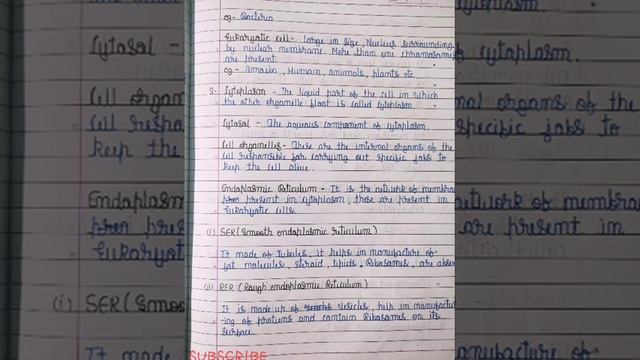 eg- Bacteria
Eukaryotic cell- Large in size, Nucleus surrounding
by nuclear membrane. More than one chromosomes
are present.
eg- Amoeba, Human, animals, plants etc
3- Cytoplasm - The liquid part of the cell in which
the other organelle float is called cytoplasm
Cytosol - The aqueous component of cytoplasm.
Cell organelles- These are the internal organs of the
cell responsible for carrying out specific jobs to
keep the cell alive.
Endoplasmic Reticulum - It is the network of membran
present in cytoplasm, these are present in
Eukaryotic cells.
(i) SER (Smooth endoplasmic reticulum)
It made of tubules, it helps in manufacture of
fat molecules, steroid, lipids, Ribosomes, are absen
(ii) RER (Rough endoplasmic Reticulum)
It is made up of vesicles, help in manufactur
-ing of protiens and contain Ribosomes on its
surface.
SUBSCRIBE